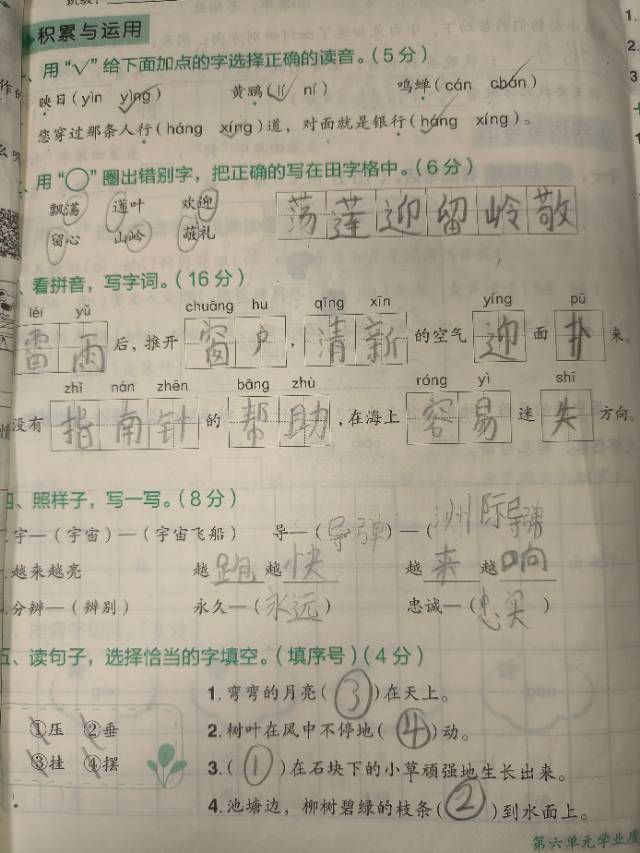 积累与运用
、用“√”给下面加点的字选择正确的读音。(5分)
映日(yìn yìng) 黄鹂(lí ní) 鸣蝉(cán chán)
您穿过那条人行(háng xíng)道,对面就是银行(háng xíng)。
、用“○”圈出错别字,把正确的写在田字格中。(6分)
飘荡 莲叶 欢迎 荡莲迎留岭敬
留心 山岭 敬礼
、看拼音,写字词。(16分)
léi yǔ chuāng hu qīng xīn yíng pū
雷雨后,推开窗户,清新的空气迎面扑来。
zhǐ nán zhēn bāng zhù róng yì shī
没有指南针的帮助,在海上容易迷失方向。
四、照样子,写一写。(8分)
宇—(宇宙)—(宇宙飞船) 导—(导弹)—(洲际导弹
越来越亮 越跑越快 越来越响
分辨—(辨别) 永久—(永远) 忠诚—(忠实)
五、读句子,选择恰当的字填空。(填序号)(4分)
1.弯弯的月亮(③)在天上。
①压 ②垂 2.树叶在风中不停地(④)动。
③挂 ④摆 3.(①)在石块下的小草顽强地生长出来。
4.池塘边,柳树碧绿的枝条(②)到水面上。
第六单元学业质